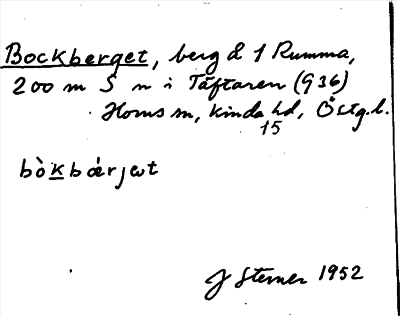 Bockberget, berg å 1 Rumma,
200 m S n i Täftaren (G36)
Horns sn, Kinda hd, Östg.l.
15
bò̀kbǽrjət
J Sterner 1952